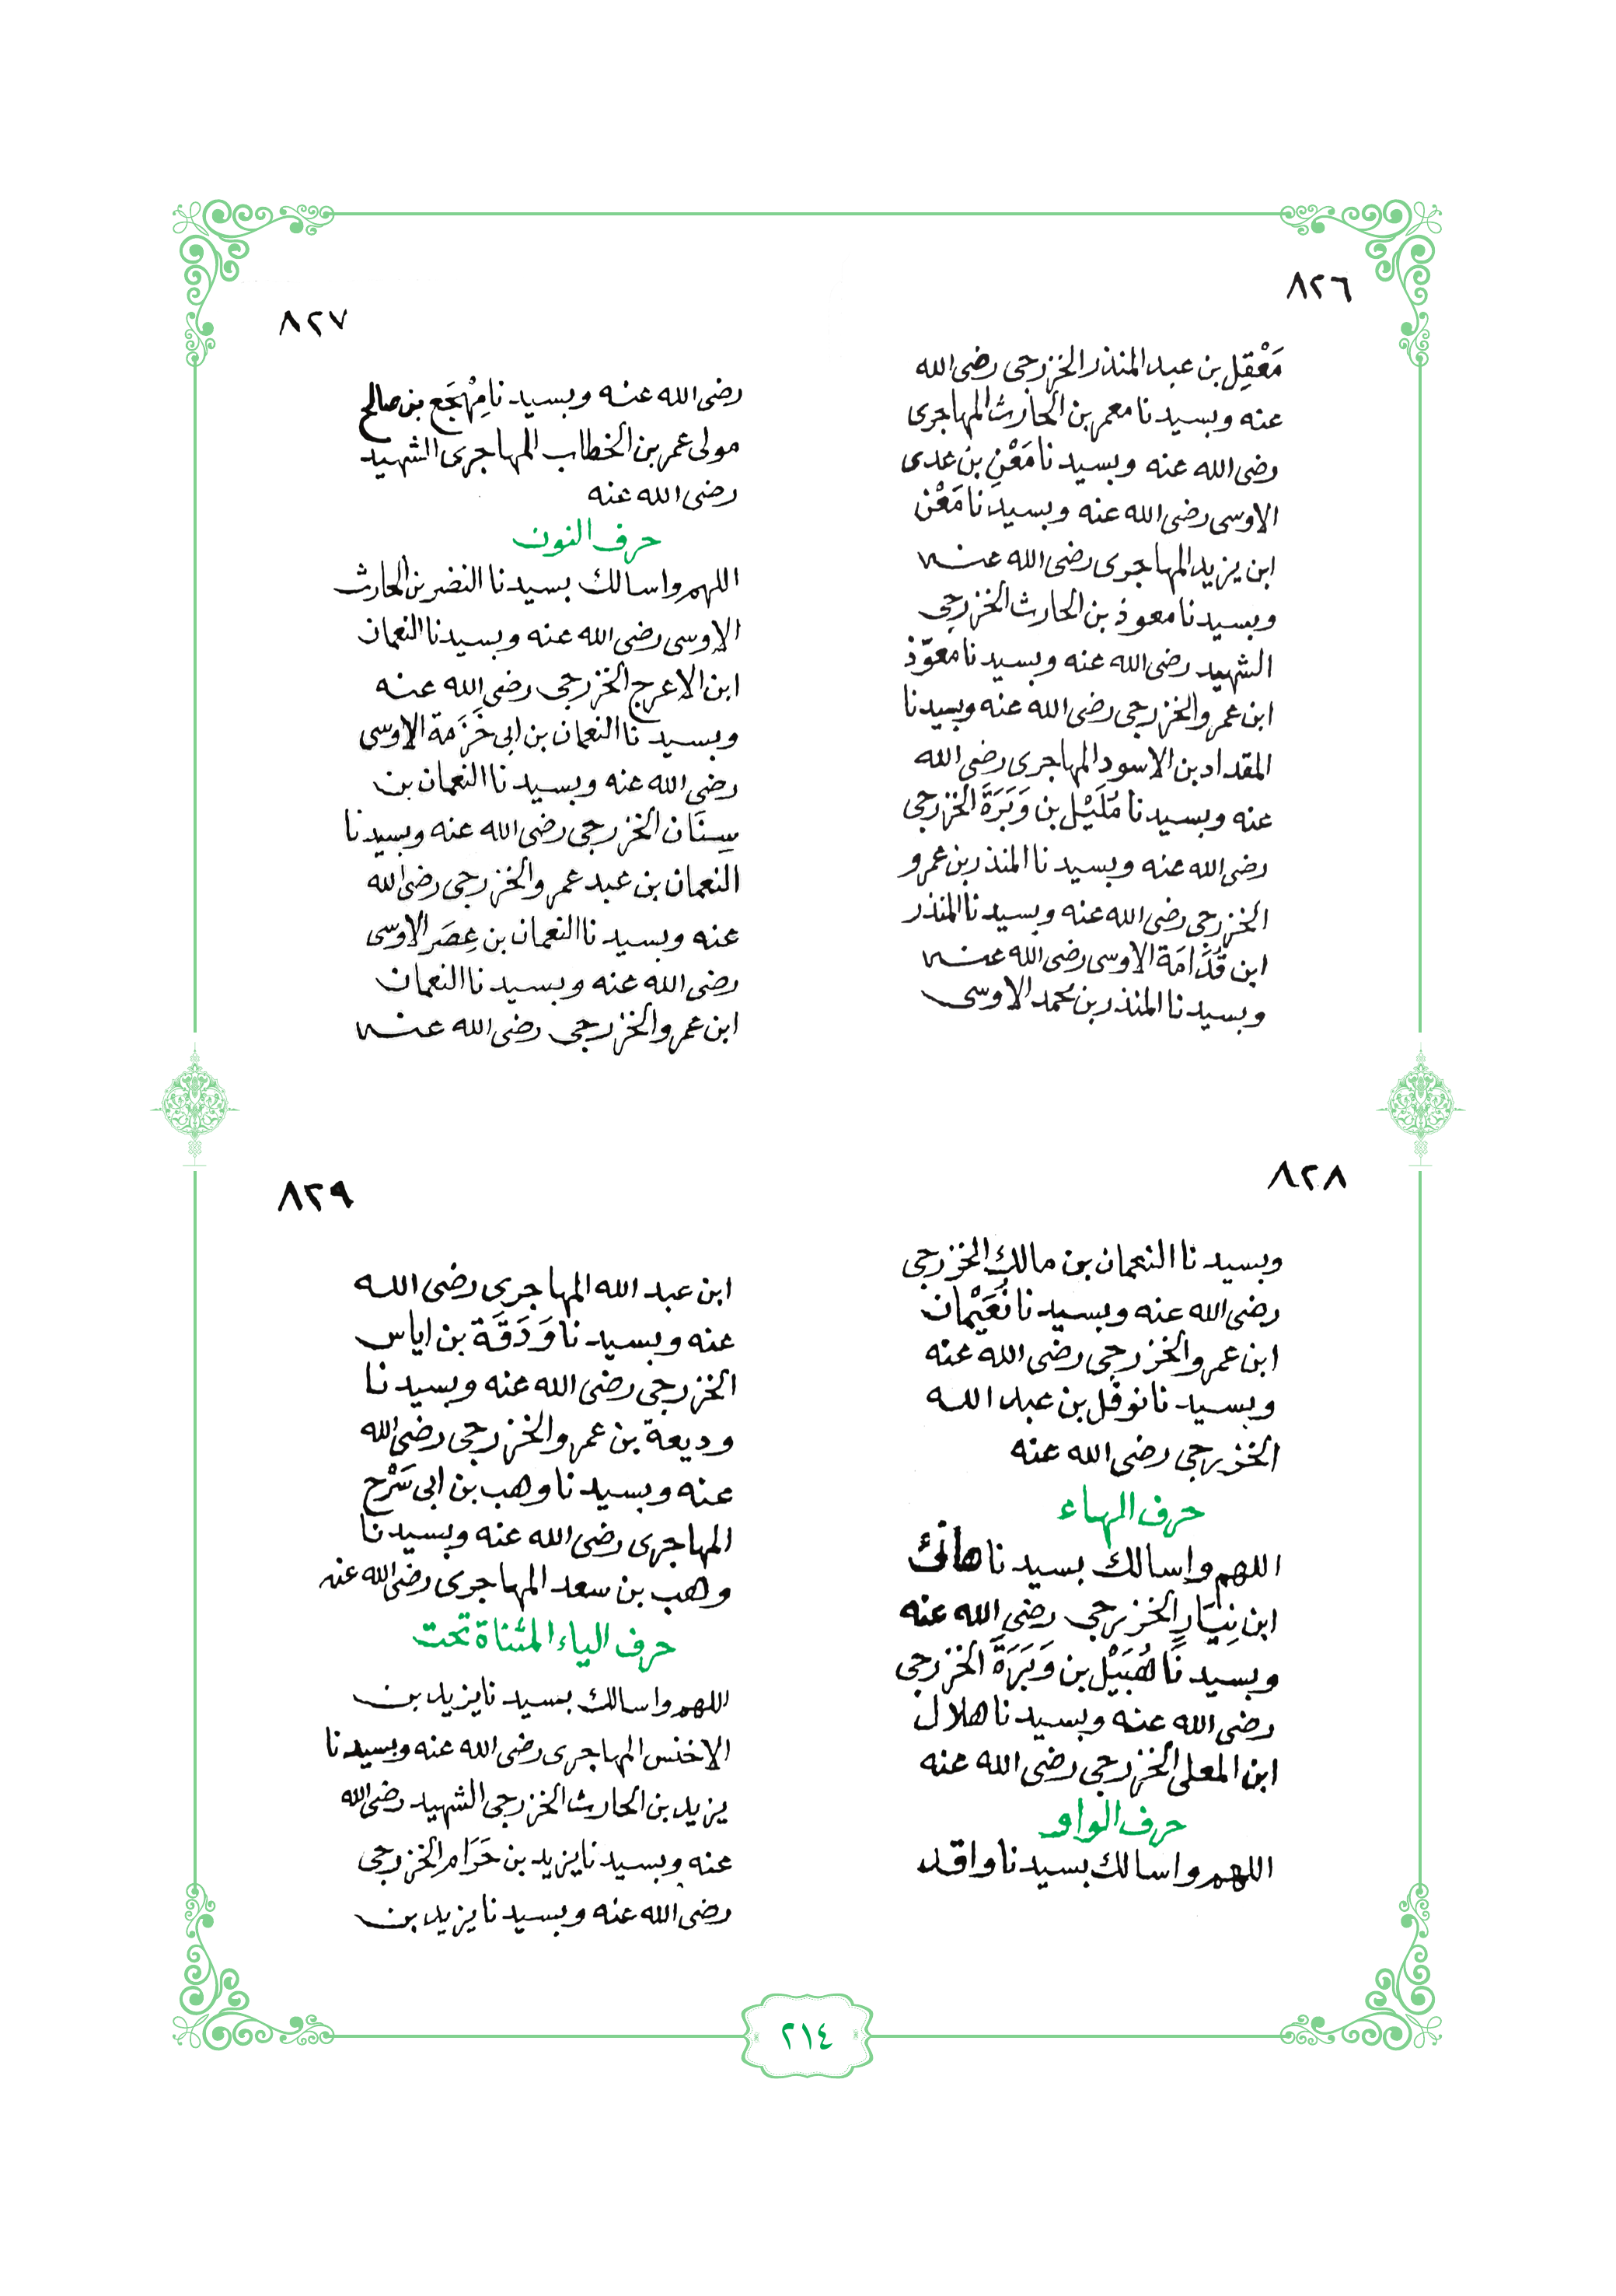 ٨٢٦
مَعْقِل بن عبد المنذر الخزرجى رضى الله
عنه وبسيدنا معمر بن الحارث المهاجرى
رضى الله عنه وبسيدنا مَعْن بن عدى
الاوسى رضى الله عنه وبسيدنا مَعْن
ابن يزيد المهاجرى رضى الله عنه
وبسيدنا معوذ بن الحارث الخزرجى
الشهيد رضى الله عنه وبسيدنا معوّذ
ابن عمرو الخزرجى رضى الله عنه وبسيدنا
المقداد بن الاسود المهاجرى رضى الله
عنه وبسيدنا مُلَيْل بن وَبَرَةَ الخزرجى
رضى الله عنه وبسيدنا المنذر بن عمرو
الخزرجى رضى الله عنه وبسيدنا المنذر
ابن قُدَّامَة الاوسى رضى الله عنه
وبسيدنا المنذر بن محمد الاوسى
٨٢٧
رضى الله عنه وبسيدنا مِهْجَع بن صالح
مولى عمر بن الخطاب المهاجرى الشهيد
رضى الله عنه
حرف النون
اللهم واسالك بسيدنا النضر بن الحارث
الاوسى رضى الله عنه وبسيدنا النعمان
ابن الاعرج الخزرجى رضى الله عنه
وبسيدنا النعمان بن ابى خَزَمَة الاوسى
رضى الله عنه وبسيدنا النعمان بن
سِنَان الخزرجى رضى الله عنه وبسيدنا
النعمان بن عبد عمرو الخزرجى رضى الله
عنه وبسيدنا النعمان بن عِصَر الاوسى
رضى الله عنه وبسيدنا النعمان
ابن عمرو الخزرجى رضى الله عنه
٨٢٨
وبسيدنا النعمان بن مالك الخزرجى
رضى الله عنه وبسيدنا نُعَيْمان
ابن عمرو الخزرجى رضى الله عنه
وبسيدنا نوفل بن عبد الله
الخزرجى رضى الله عنه
حرف الهاء
اللهم واسالك بسيدنا هانئ
ابن نِيَارِ الخزرجى رضى الله عنه
وبسيدنا هُبَيْل بن وَبَرَةَ الخزرجى
رضى الله عنه وبسيدنا هلال
ابن المعلى الخزرجى رضى الله عنه
حرف الواو
اللهم واسالك بسيدنا واقد
٨٢٩
ابن عبد الله المهاجرى رضى الله
عنه وبسيدنا وَدَقَة بن اياس
الخزرجى رضى الله عنه وبسيدنا
وديعة بن عمرو الخزرجى رضى الله
عنه وبسيدنا وهب بن ابى سَرْح
المهاجرى رضى الله عنه وبسيدنا
وهب بن سعد المهاجرى رضى الله عنه
حرف الياء المثناة تحت
اللهم واسالك بسيدنا يزيد بن
الاخنس المهاجرى رضى الله عنه وبسيدنا
يزيد بن الحارث الخزرجى الشهيد رضى الله
عنه وبسيدنا يزيد بن حَرَام الخزرجى
رضى الله عنه وبسيدنا يزيد بن
٢١٤